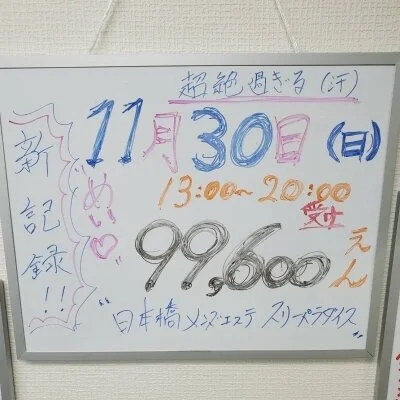 超絶過ぎる(汗)
11月30日(日)
新記録!!
"めい♡"
13:00〜20:00
受士
99,600えん
"日本橋メンズエステ スリーパラダイス"